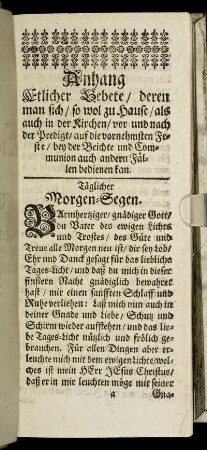 Anhang
Etlicher Gebete / deren
man sich / so wol zu Hause / als
auch in der Kirchen / vor und nach
der Predigt / auf die vornehmsten Fe-
ste / bey der Beichte und Com-
munion auch andern Fäl-
len bedienen kan.
Täglicher
Morgen-Segen.
BArmhertziger / gnädiger Gott /
du Vater des ewigen Lichts
und Trostes / des Güte und
Treue alle Morgen neu ist / dir sey Lob /
Ehr und Danck gesagt für das liebliche
Tages-Licht / und daß du mich in dieser
finstern Nacht gnädiglich bewahret
hast / mir einen sanfften Schlaff und
Ruhe verliehen: Laß mich nun auch in
deiner Gnade und Liebe / Schutz und
Schirm wieder aufstehen / und das lie-
be Tages-Licht nützlich und frölich ge-
brauchen. Für allen Dingen aber er-
leuchte mich mit dem ewigen Lichte / wel-
ches ist mein HErr JEsus Christus /
daß er in mir leuchten möge mit seiner
a Gna-